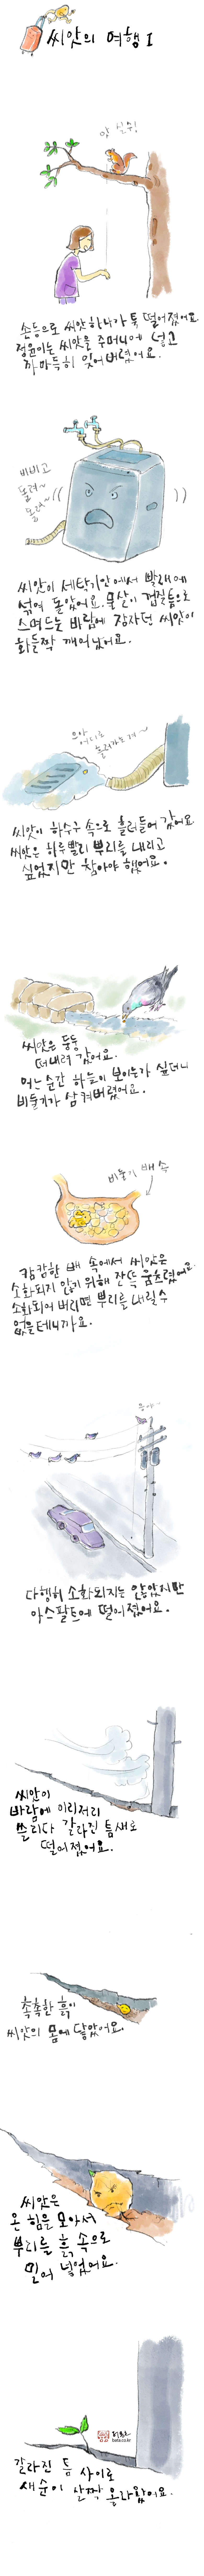 씨앗의 여행 I
앗 실수!
손등으로 씨앗 하나가 툭 떨어졌어요.
정윤이는 씨앗을 주머니에 넣고
까마득히 잊어버렸어요.
비비고
돌려~
돌려~
씨앗이 세탁기안에서 빨래에
섞여 돌았어요. 물살이 껍질틈으로
스며드는 바람에 잠자던 씨앗이
화들짝 깨어났어요.
으아
어디로
흘러가는 거~
씨앗이 하수구 속으로 흘러들어 갔어요.
씨앗은 하루빨리 뿌리를 내리고
싶었지만 참아야 했어요.
씨앗은 둥둥
떠내려 갔어요.
어느순간 하늘이 보이는가 싶더니
비둘기가 삼켜버렸어요.
비둘기 배 속
캄캄한 배 속에서 씨앗은
소화되지 않기 위해 잔뜩 움츠렸어요.
소화되어 버리면 뿌리를 내릴 수
없을테니까요.
다행히 소화되지는 않았지만
아스팔트에 떨어졌어요.
씨앗이
바람에 이리저리
쓸리다 갈라진 틈새로
떨어졌어요.
촉촉한 흙이
씨앗의 몸에 닿았어요.
씨앗은
온 힘을 모아서
뿌리를 흙 속으로
밀어 넣었어요.
bata.co.kr
갈라진 틈 사이로
새순이 살짝 올라왔어요.